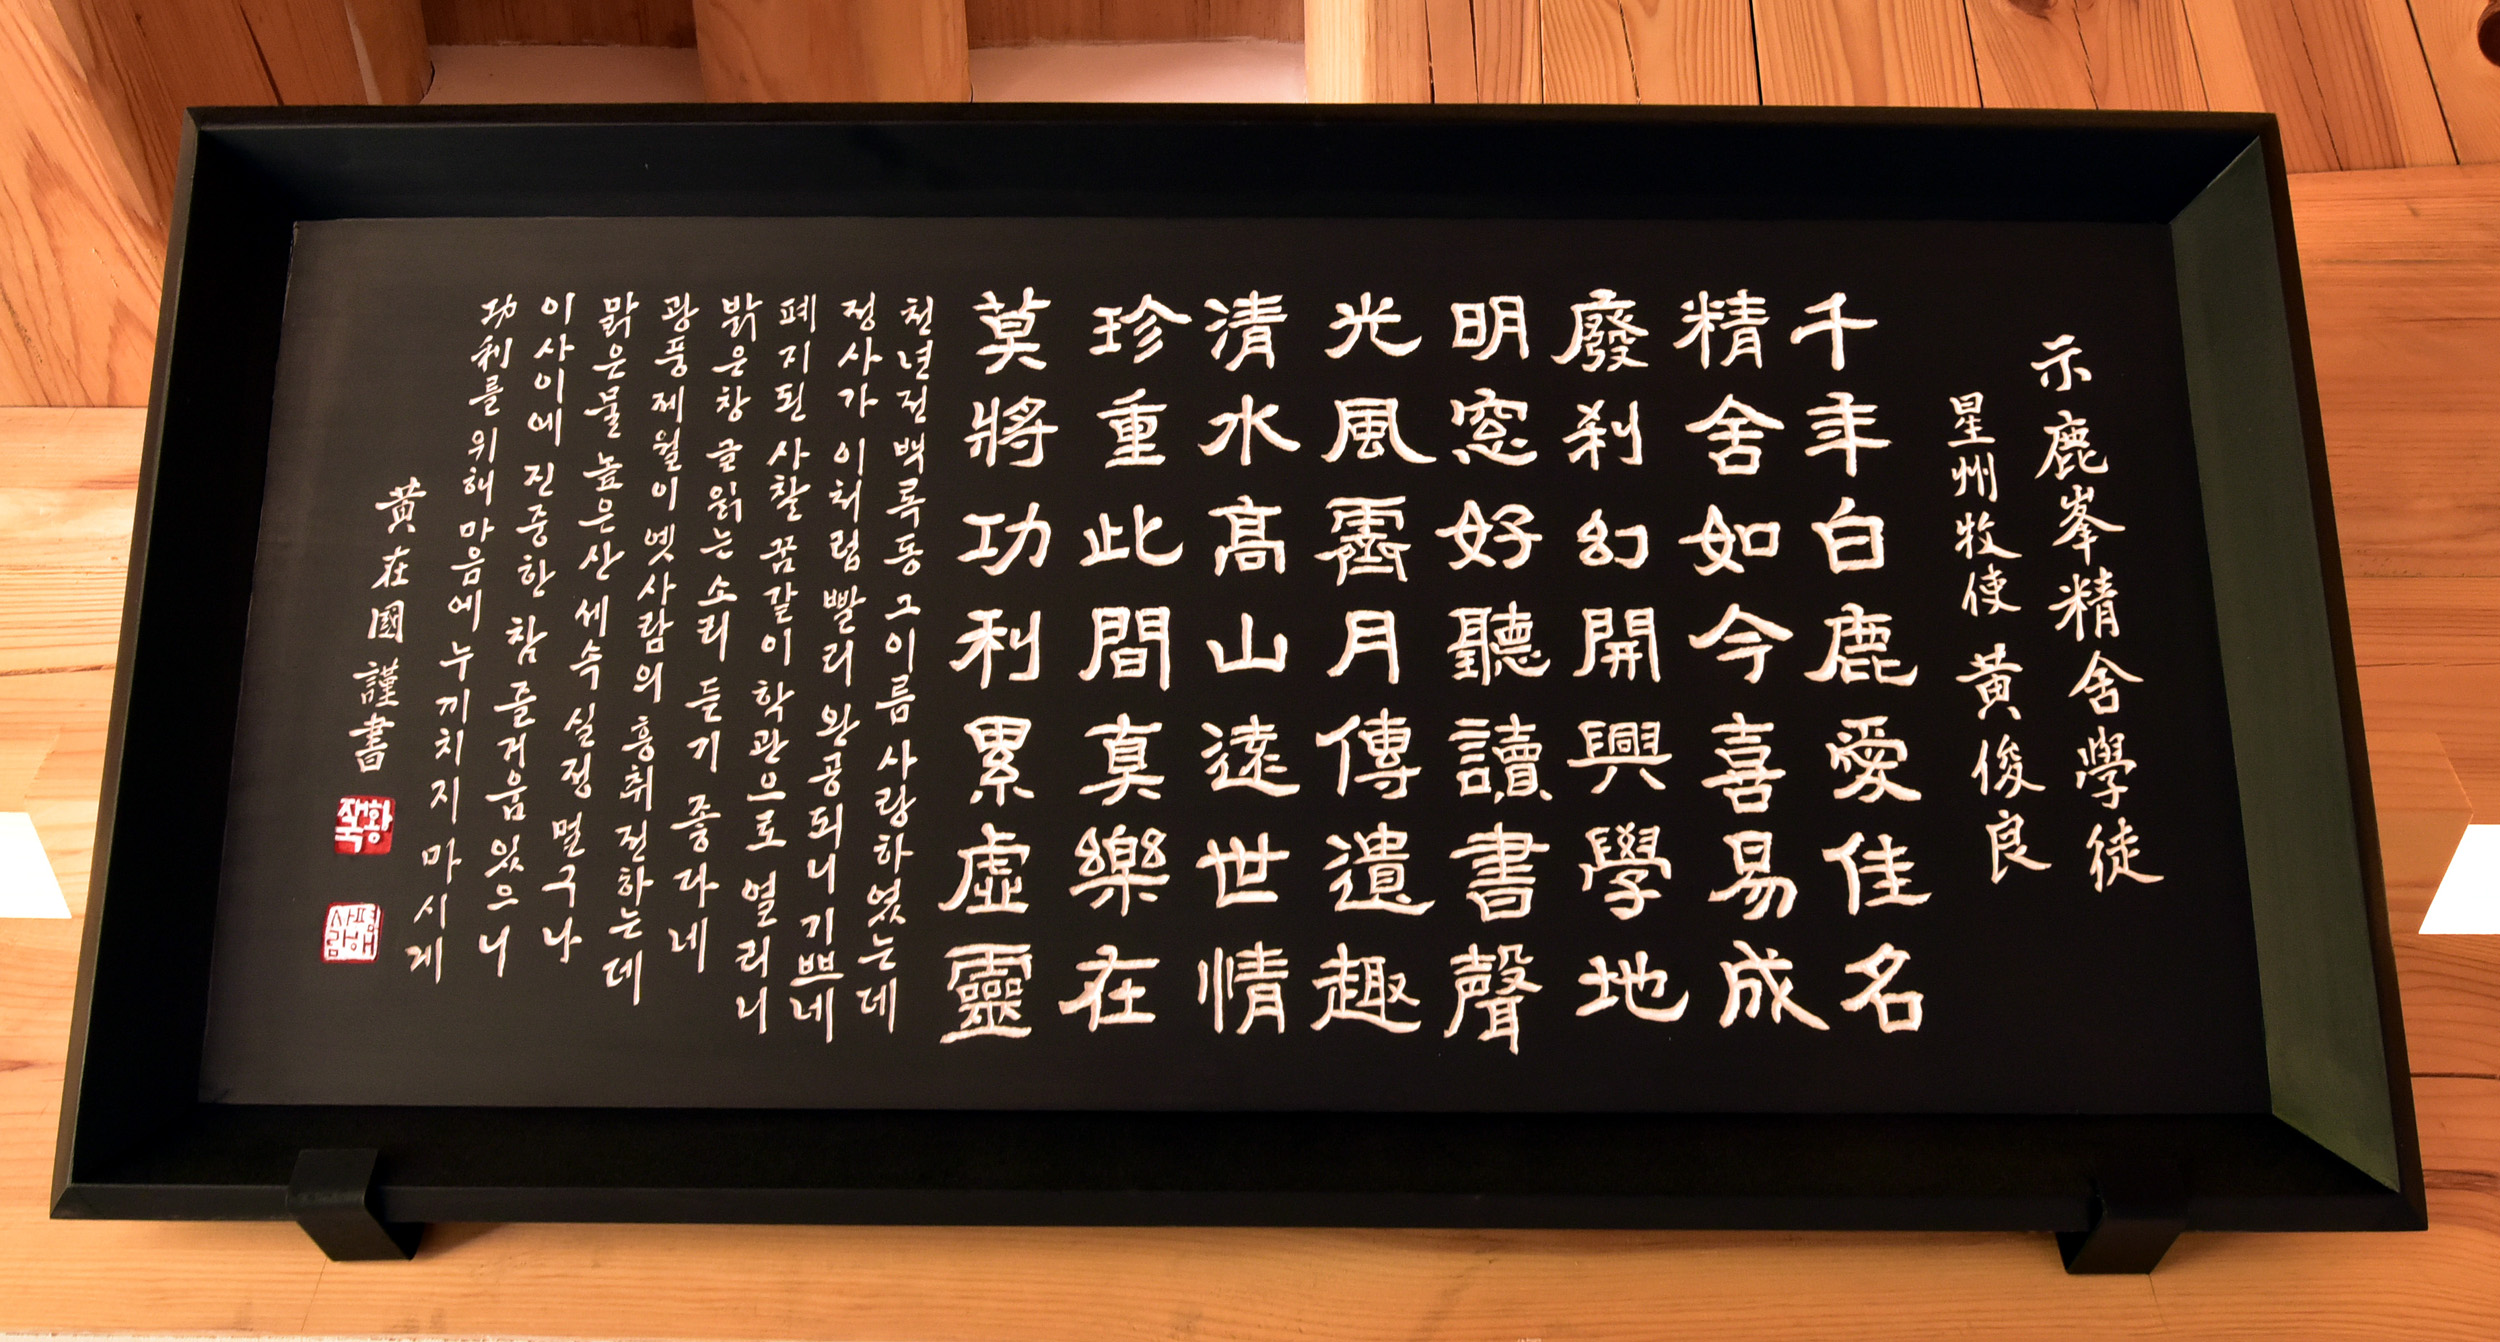 示鹿峯精舍學徒
星州牧使 黃俊良
千年白鹿愛佳名
精舍如今喜易成
廢刹幻開興學地
明窓好聽讀書聲
光風霽月傳遺趣
清水高山遠世情
珍重此間真樂在
莫將功利累虛靈
천년전 백록동 그이름 사랑하였는데
정사가 이처럼 빨리 완공되니 기쁘네
폐지된 사찰 꿈같이 학관으로 열리니
밝은창 글 읽는 소리 듣기 좋다네
광풍제월이 옛사람의 흥취 전하는데
맑은물 높은산 세속 실정 멀구나
이사이에 진중한 참 즐거움 있으니
功利를 위해 마음에 누끼치지 마시게
黃在國 謹書
황재국
평해사람